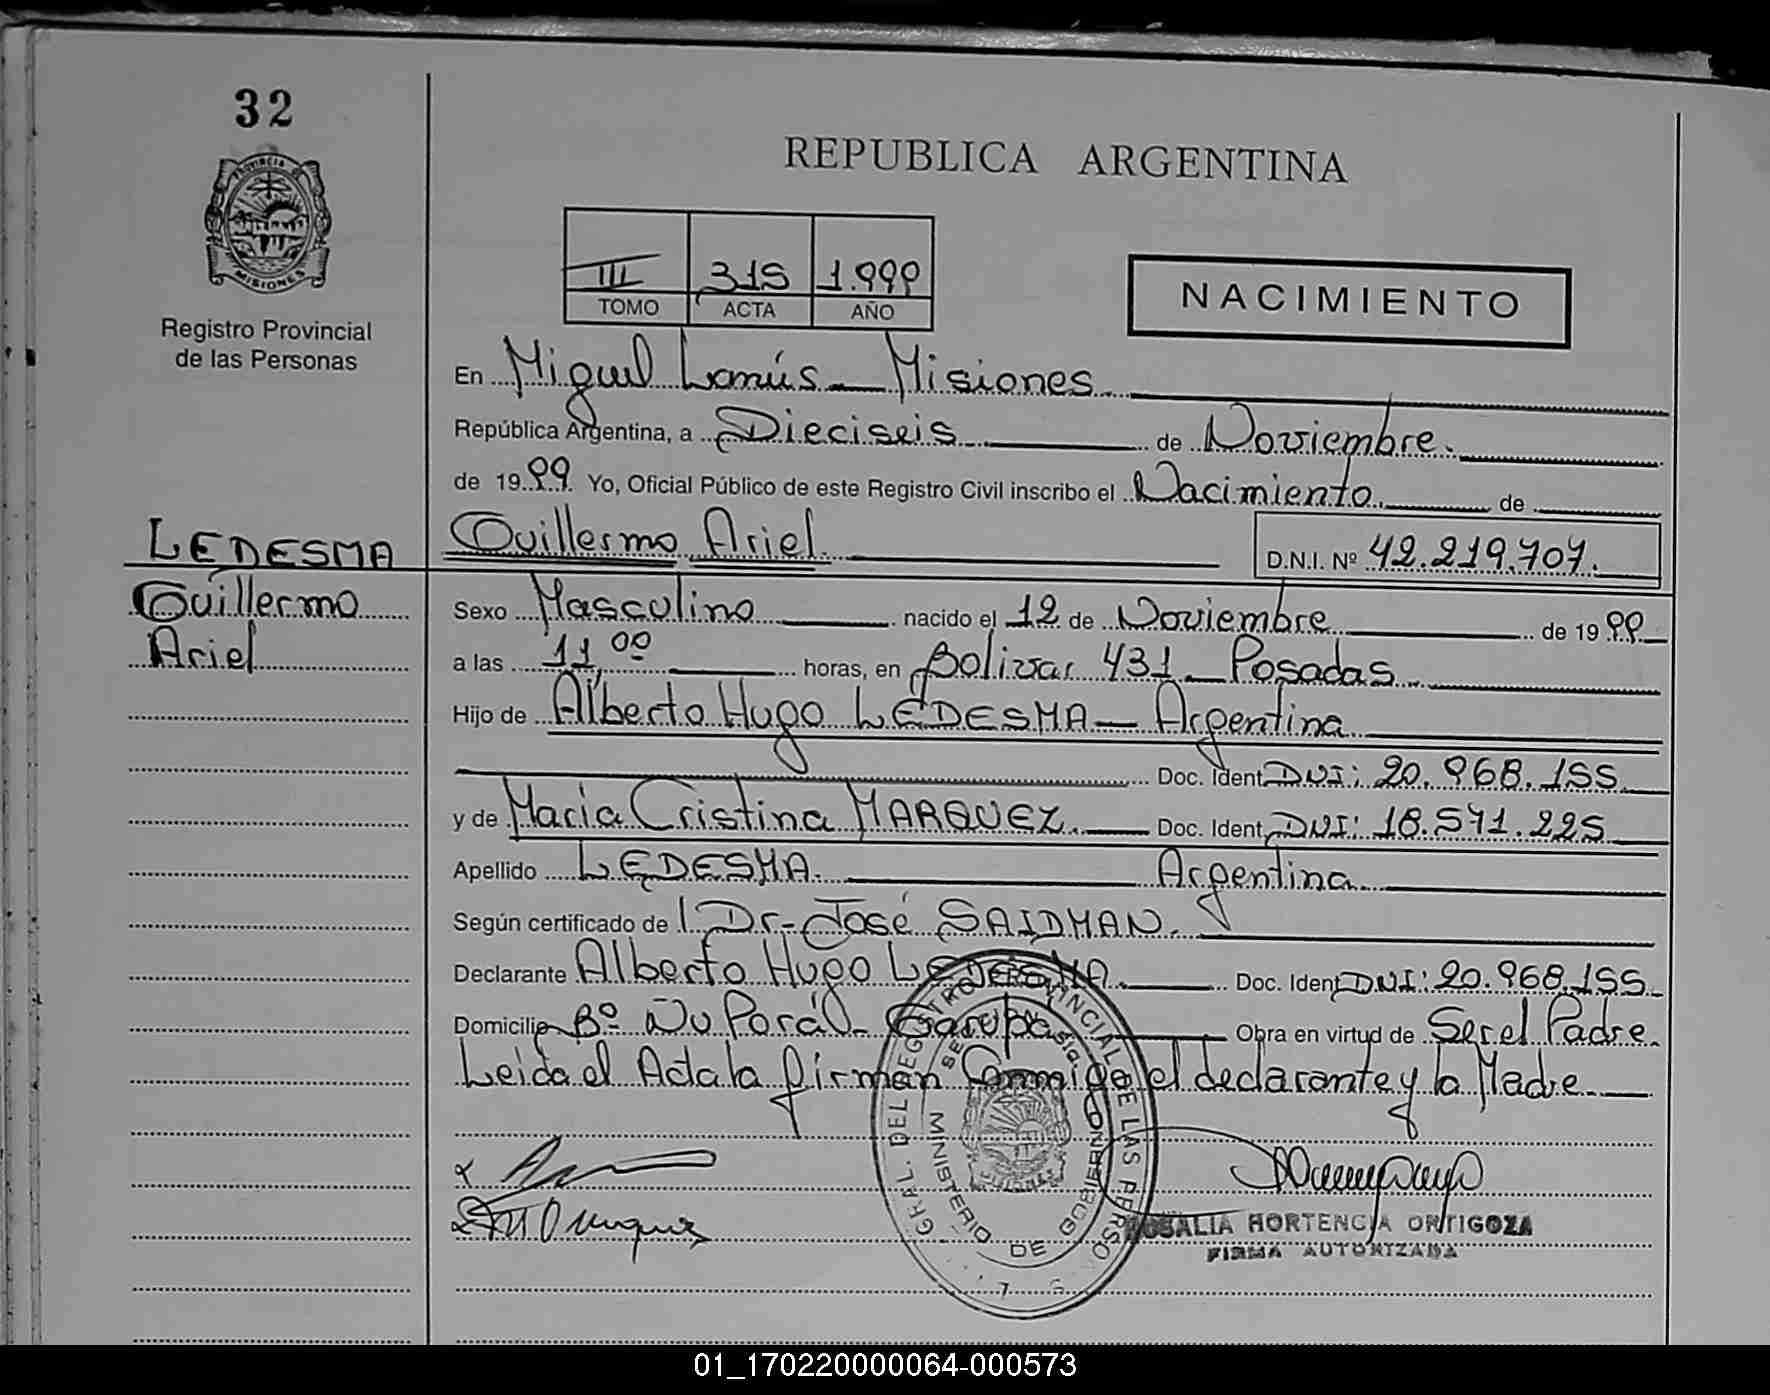 32
PROVINCIA DE
MISIONES
Registro Provincial
de las Personas
REPUBLICA ARGENTINA
III 315 1.999
TOMO ACTA AÑO
NACIMIENTO
En Miguel Lanús - Misiones
República Argentina, a Dieciseis de Noviembre
de 1999 Yo, Oficial Público de este Registro Civil inscribo el Nacimiento de
LEDESMA
Guillermo
Ariel
Guillermo Ariel
D.N.I. Nº 42.219.707.
Sexo Masculino nacido el 12 de Noviembre de 1999
a las 11,00 horas, en Bolivar 431 - Posadas
Hijo de Alberto Hugo LEDESMA - Argentina
Doc. Ident. DNI: 20.968.155
y de Maria Cristina MARQUEZ. Doc. Ident. DNI: 18.571.225
Apellido LEDESMA. Argentina
Según certificado de Dr. José SAIDMAN.
Declarante Alberto Hugo LEDESMA. Doc. Ident. DNI: 20.968.155
Domicilio Bº Ñu Porá - Garupá Obra en virtud de Ser el Padre.
Leida el Acta la firman Conmigo el declarante y la Madre.
GRAL. DEL REGISTRO PROVINCIAL DE LAS PERSO
MINISTERIO DE GOBIERNO
MISIONES
ROSALIA HORTENCIA ORTIGOZA
FIRMA AUTORIZADA
01_170220000064-000573